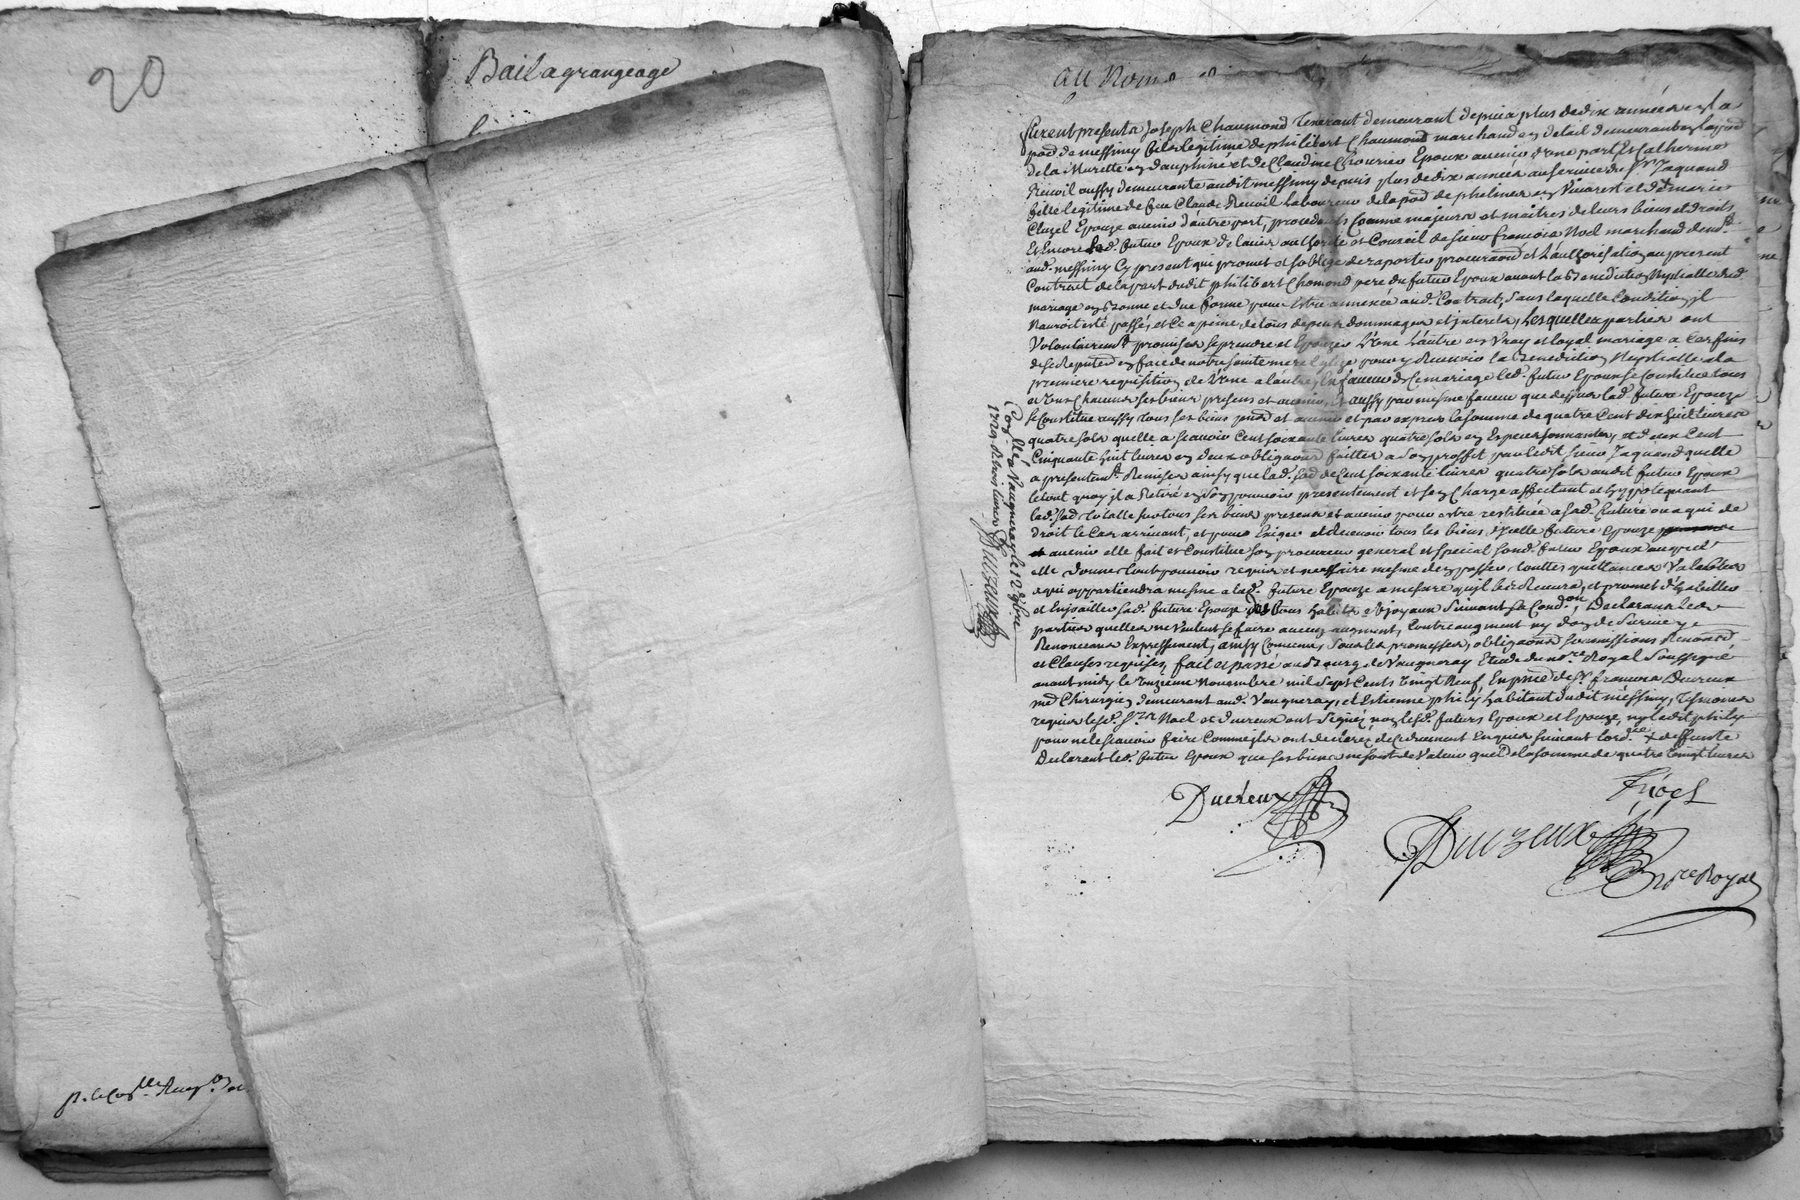 20
Bail a grangeage
au Nom
furent presents Joseph Chaumond Tixerant demeurant depuis plus de dix années en la
par de messimy fils legitime de philibert Chaumond marchand en detail demeurant en la par
de la Murette en dauphiné et de Claudine Chourier Epoux avenir d'une part Et Catherine
Reuoil aussy demeurante audit messimy depuis plus de dix années au service du Sr Jaquand
fille legitime de feu Claude Reuoil laboureur de la par de phelines en Vivarest et de marie
Cluzel Epouze avenir d'autre part, procedants Comme majeurs et maitres de leurs biens et droits
Et Encore led. futur Epoux de l'avis authorité et Conseil de sieur francois Noel marchand dem.t
aud. messimy Cy present qui promet et s'oblige de raporter procuraon et l'authorisation au present
Contrat de la part dudit philibert Chomond pere du futur Epoux avant la Benediction Nuptialle dud.
mariage en bonne et due forme pour Estre annexée aud. Contrat, sans laquelle Condition il
N'auroit esté passé, et ce a peine de tous depens dommages et interets, Lesquelles parties ont
Volontairem.t promis se prendre et Epouzer L'une L'autre en Vray et loyal mariage a ces fins
de se presenter en face de notre sainte mere Eglize pour y Recevoir la Benediction Nuptialle a la
premiere requisition de l'une a l'autre, En faveur de Ce mariage led. futur Epoux se Constitue tous
et Uns Chacuns ses biens presens et avenir, Et aussy par mesme faveur que dessus lad. future Epouze
se Constitue aussy tous ses biens pnts et avenir et par expres la somme de quatre Cent dix huit livres
quatre sols quelle a scavoir Cent soixante livres quatre sols en Especes sonnantes, et deux Cent
Cinquante huit livres en deux obligaons faittes a son proffit par ledit sieur Jaquand quelle
a presentem.t Remises ainsy que lad. so.e de Cent soixante livres quatre sols audit futur Epoux
le tout quoy il a Retiré en son pouvoir presentement et s'en Charge affectant et hypotequant
lad. so.e totalle sur tous ses biens presens et avenir pour estre restituée a lad. future ou a qui de
droit le Cas arrivant, et pour Exiger et Recevoir tous les biens d'icelle future Epouze
et avenir elle fait et Constitue son procureur general et special sond. futur Epoux auquel
elle donne tout pouvoir requis et necessaire mesme de en passer touttes quittances Valables
a qui appartiendra mesme a lad. future Epouze a mesure qu'il les Recevra, et promet d'habiller
et Enjoailler lad. future Epouze de tous habits et joyaux suivant sa Condon, Declarant les
parties quelles ne Veulent se faire aucun augment, Contre augment ny don de survie y
Renonceant Expressement, ainsy Convenu, sous les promesses, obligaons soumissions Renonceaons
et Clauses requises, fait et passé au Bourg de Vaugneray Etude du no.re Royal Soussigné
avant midy le onzieme Novembre mil sept Cents Vingt Neuf En pnce de Sr francois Ducreux
me Chirurgien demeurant aud. Vaugneray, et Estienne phily habitant dudit messimy, Tesmoins
requis lesd. Srs Noel et Ducreux ont signéz non lesd. futurs Epoux et Epouze, ny ledit phily
pour ne le scavoir faire Comme ils ont declaréz de Ce duement Enquis suivant l'ord.ce + deffunte
Declarant led. futur Epoux que ses biens ne sont de Valeur que De la somme de quatre Vingt livres
Collé a Vaugneray le 12e 9bre
1729. R. trois livres
Ducreux
Noel
Duczeux
nre Royal